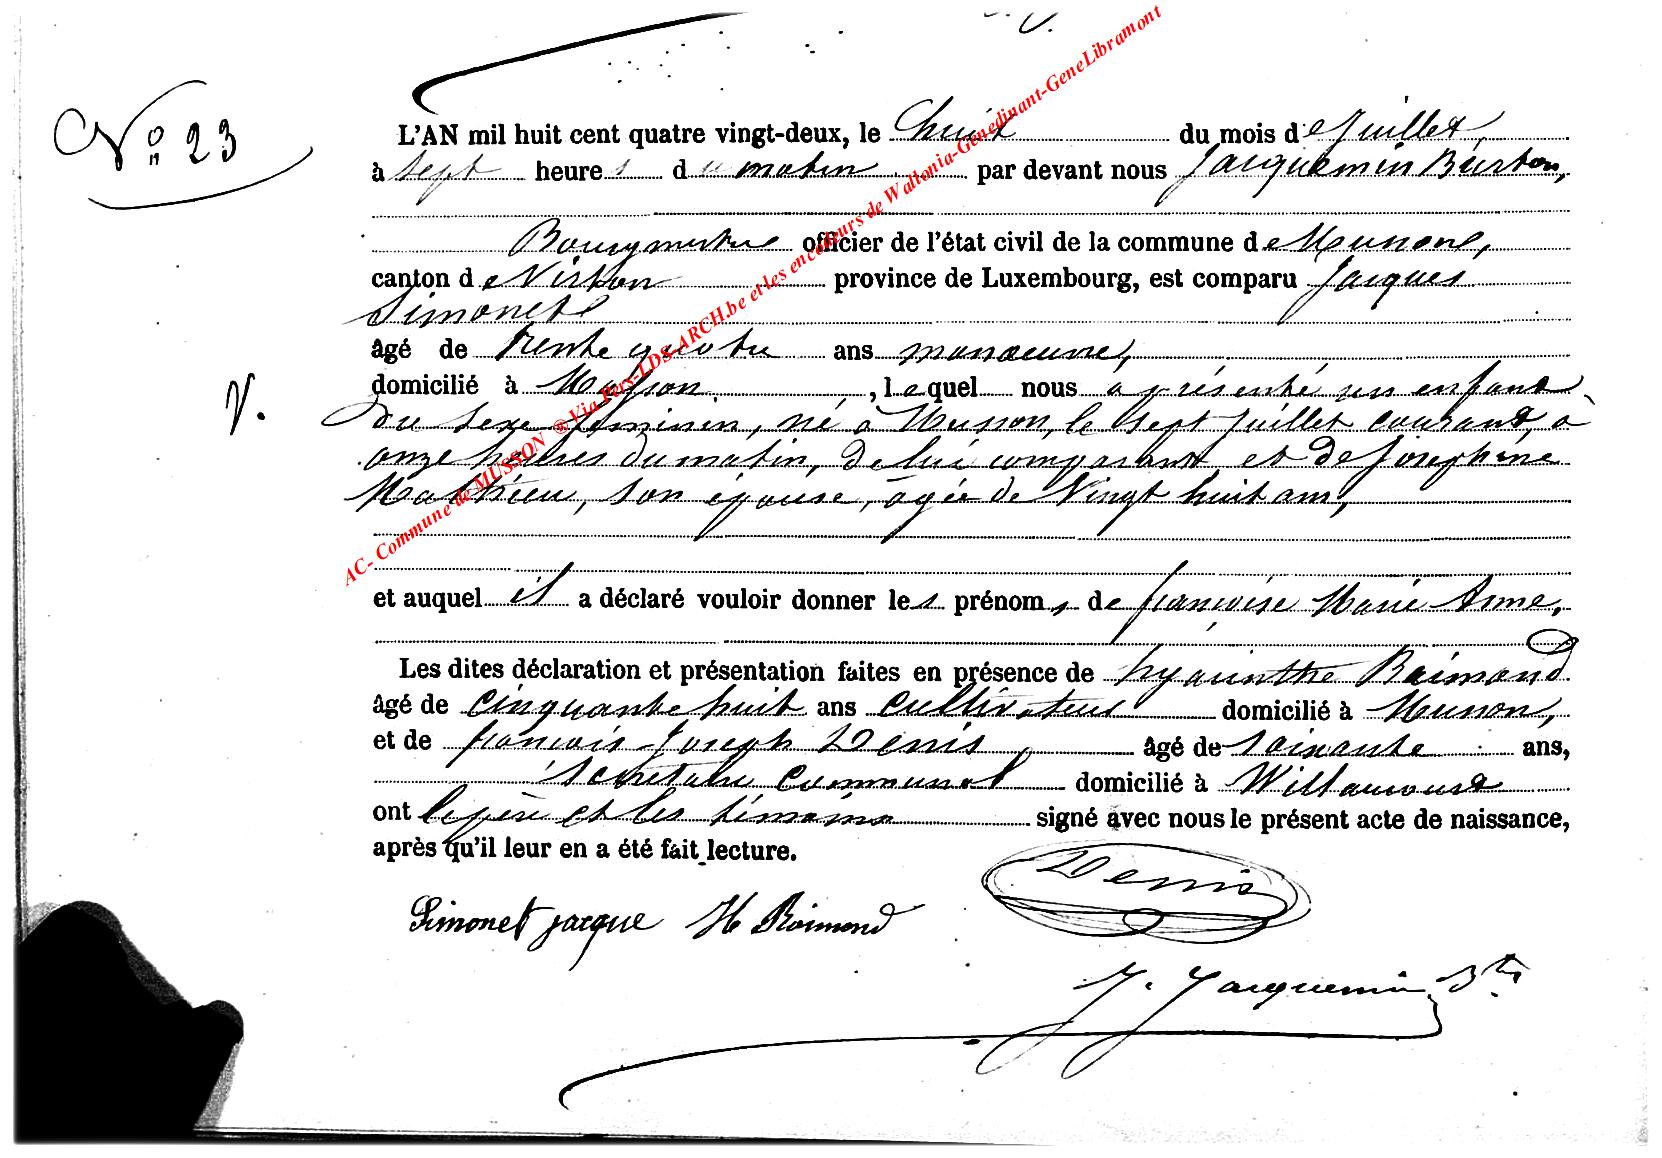 N° 23
L'AN mil huit cent quatre vingt-deux, le huit du mois de Juillet,
à sept heures du matin par devant nous Jacquemin Burton,
Bourgmestre officier de l'état civil de la commune de Musson,
canton de Virton province de Luxembourg, est comparu Jacques
Simonet
âgé de trente quatre ans manoeuvre,
domicilié à Musson, lequel nous a présenté un enfant
V.
du sexe féminin, né à Musson, le sept juillet courant, à
onze heures du matin, de lui comparant et de Josephine
Mathieu, son épouse, âgée de vingt huit ans,
et auquel il a déclaré vouloir donner les prénoms de françoise Marie Anne,
Les dites déclaration et présentation faites en présence de hyacinthe Raimond
âgé de cinquante huit ans cultivateur domicilié à Musson,
et de françois-Joseph Denis, âgé de soixante ans,
secrétaire communal domicilié à Willancourt
ont le père et les témoins signé avec nous le présent acte de naissance,
après qu'il leur en a été fait lecture.
Denis
Simonet jacque H Raimond
J. Jacquemin Bton
AC- Commune de MUSSON ®Via Pers-LDS-ARCH.be et les encodeurs de Wallonia-Genedinant-GeneLibramont